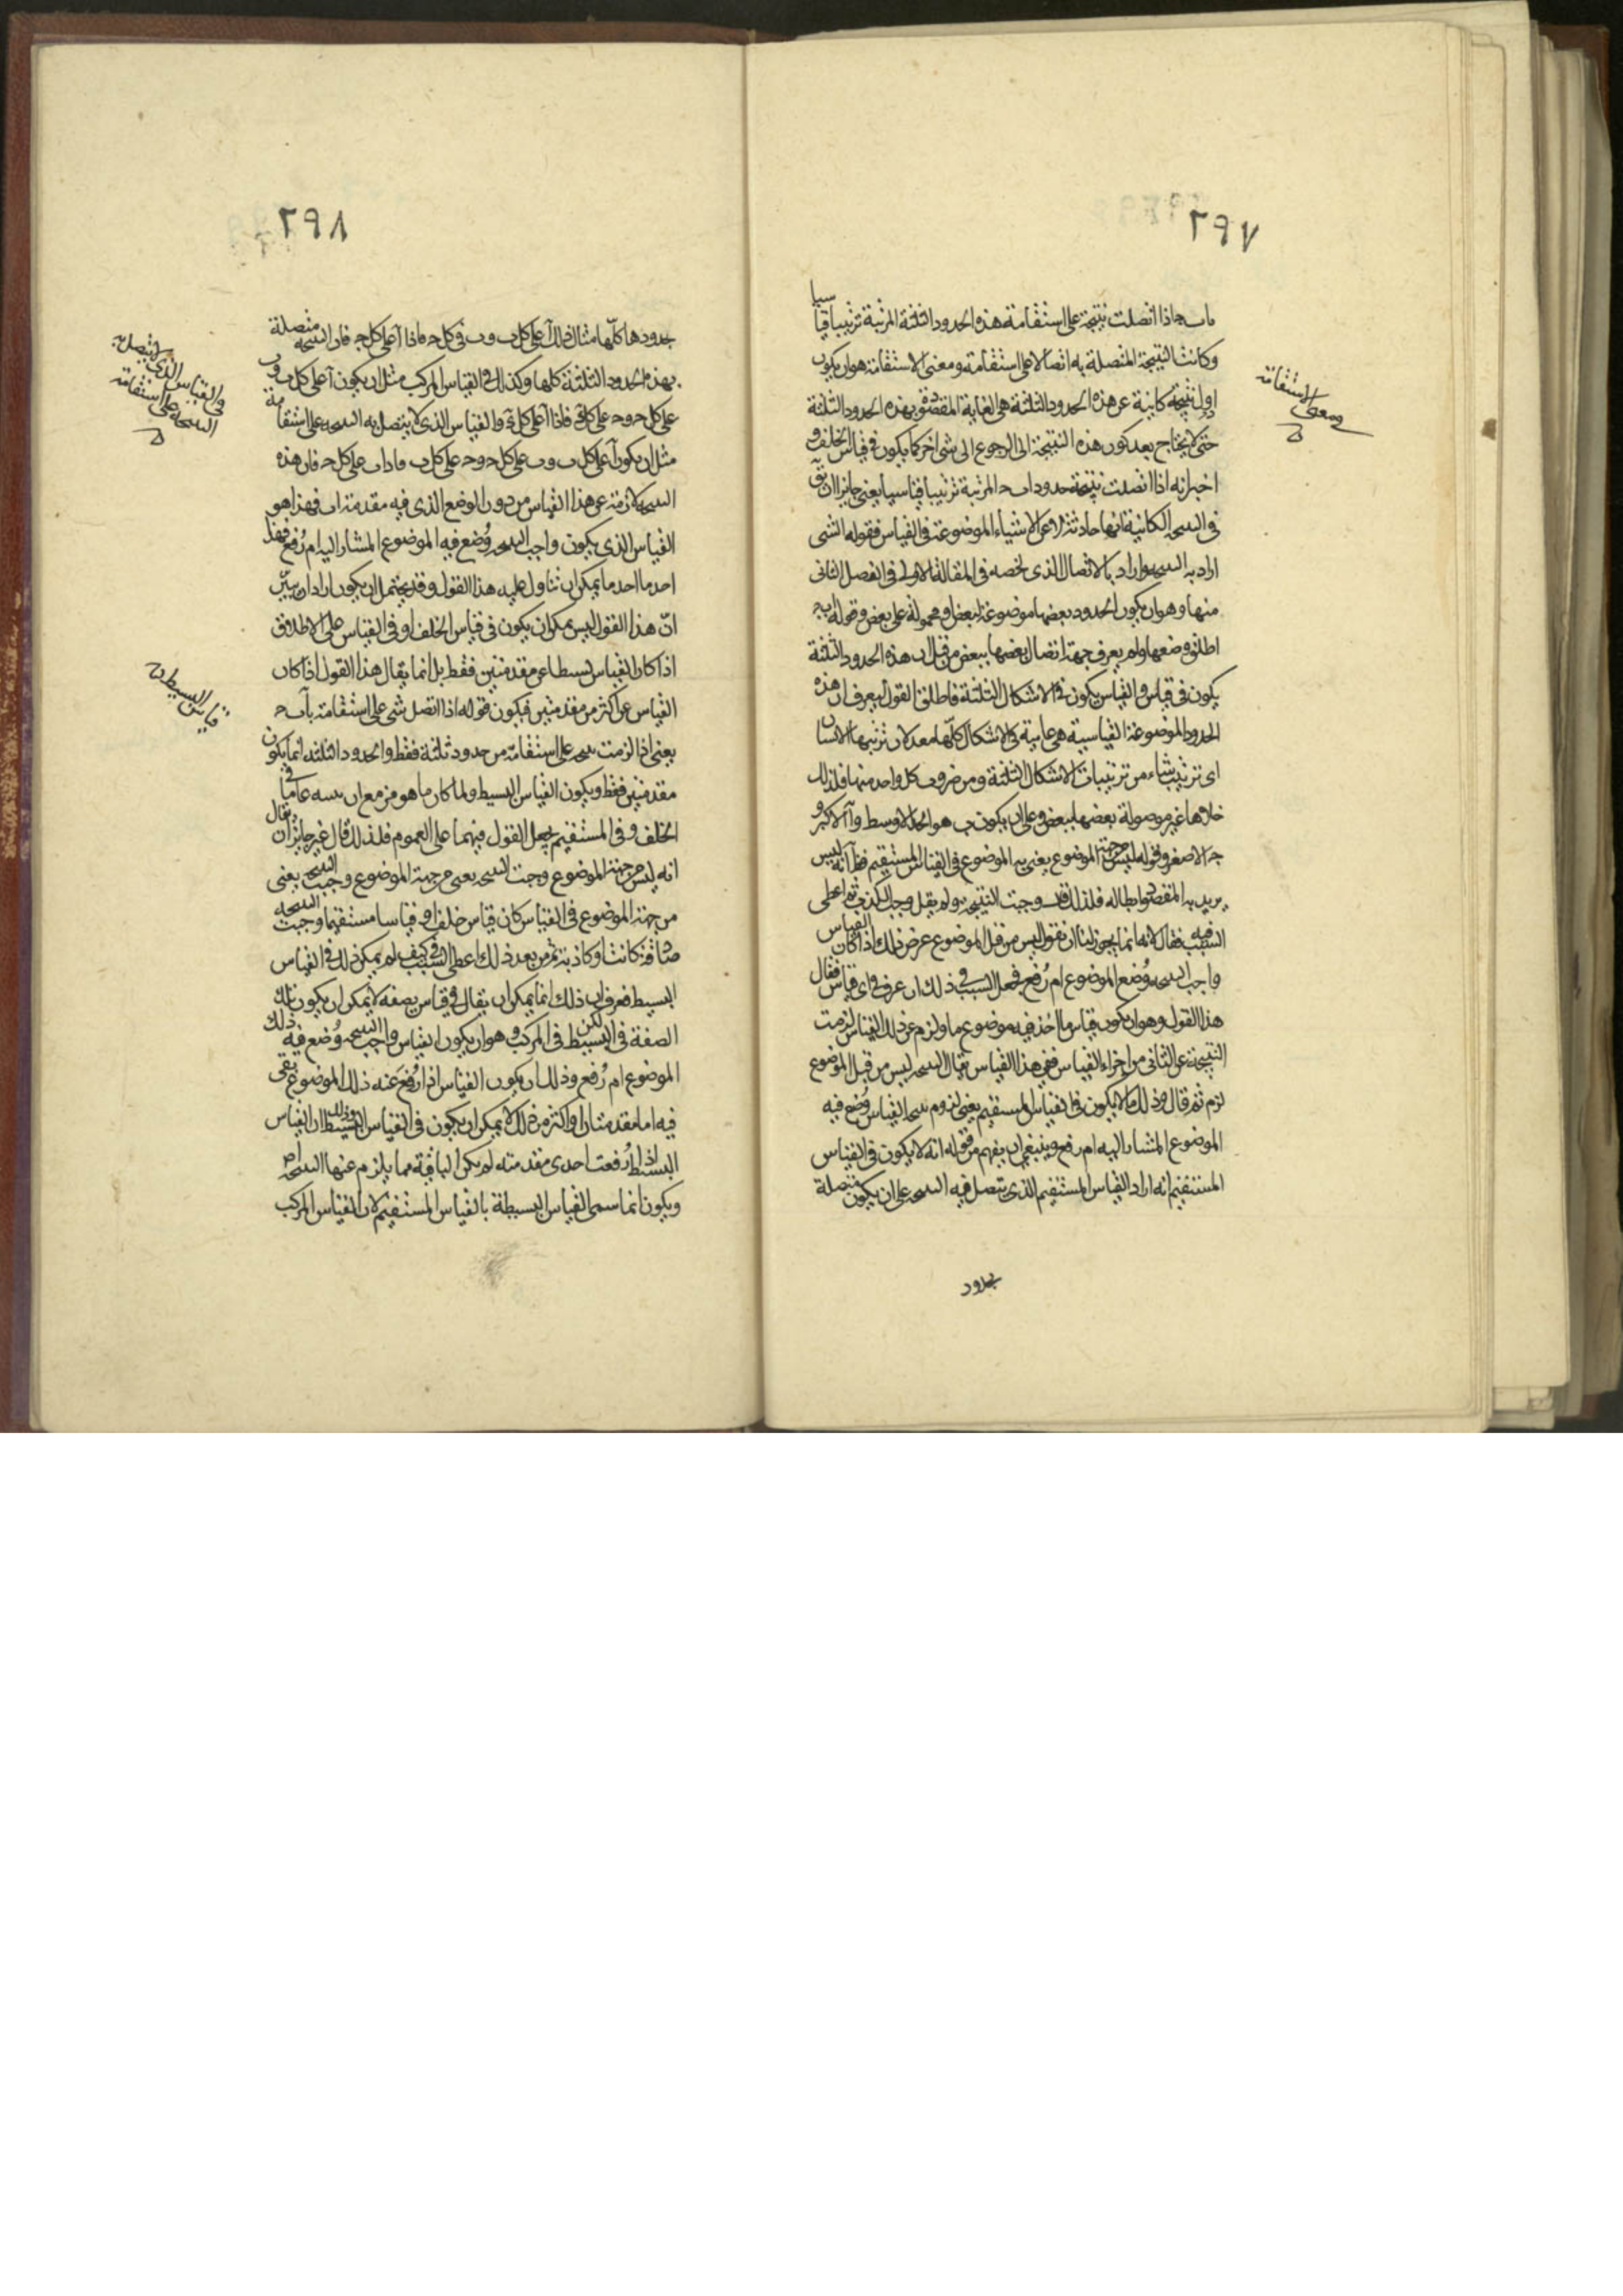 ٢٩٧
باب ج اذا اتصلت نتيجة على استقامة هذه الحدود الثلثة المرتبة ترتيبا قياسيا
وكانت النتيجة المتصلة به اتصالا على استقامة ومعنى الاستقامة هو ان يكون
اول نتيجة كاينة عن هذه الحدود الثلثة هى الغاية المقصودة بهذه الحدود الثلثة
حتى لا يحتاج بعد كون هذه النتيجة الى الرجوع الى شى اخر كما يكون فى قياس الخلف و
اخبر انه اذا اتصلت نتيجة بحدود اب ج المرتبة ترتيبا قياسيا يعنى جايزا ان يق
فى النتيجة الكاينة انها حادثة لا عن الاشياء الموضوعة فى القياس فقوله الشى
اراد به النتيجة واراد بالاتصال الذى لخصه فى المقالة الاولى فى الفصل الثانى
منها وهو ان يكون الحدود بعضها موضوعة لبعض او محمولة على بعض وقوله اب ج
اطلق وضعها ولم يعرف جهة اتصال بعضها ببعض من قبل ان هذه الحدود الثلثة
يكون فى قياس والقياس يكون فى الاشكال الثلثة فاطلق القول ليعرف ان هذه
الحدود الموضوعة القياسية هى عامية فى الاشكال كلها معد لان ترتبها الانسان
اى ترتيب شاء من ترتيبات الاشكال الثلثة ومن ضروب كل واحد منها فلذلك
خلاها غير موصولة بعضها ببعض وعلى ان يكون ب هو الحد الاوسط و آ الاكبر و
ج الاصغر وقوله ليس من جهة الموضوع يعنى به الموضوع فى القياس المستقيم فظ انه ليس
يريد به المقصود ابطاله فلذلك وجبت النتيجة ولم يقل وجب الكذب ثم اعطى
السبب فيه فقال لانه انما يجوز لنا ان نقول ليس من قبل الموضوع عرض ذلك اذا كان القياس
واجب النتيجة وُضع الموضوع ام رُفع فجعل السبب فى ذلك ان عرف فى اى قياس فقال
هذا القول وهو ان يكون قياس ما اُخذ فيه موضوع ما ولزم عن ذلك القياس لزمت
النتيجة عن الثانى من اجزاء القياس ففى هذا القياس يقال النتيجة ليس من قبل الموضوع
لزم ثم قال وذلك ما لا يكون فى القياس المستقيم يعنى لزوم نتيجة القياس وُضع فيه
الموضوع المشار اليه ام رفع وينبغى ان يفهم من قوله انه لا يكون فى القياس
المستقيم انه اراد القياس المستقيم الذى يتصل فيه النتيجة على ان يكون متصلة
بحدود
ومعنى الاستقامة
٢٩٨
بحدودها كلها مثال ذلك آ على كل ب و ب فى كل ج فاذا آ على كل ج فان النتيجة متصلة
بهذه الحدود الثلثة كلها وكذلك فى القياس المركب مثل ان يكون آ على كل ب و ب
على كل ج و ج على كل د فاذا آ على كل د والقياس الذى لا يتصل به النتيجة على استقامة
مثل ان يكون آ على كل ب و ب على كل ج و ج على كل د فاذا ب على كل د فان هذه
النتيجة لازمة عن هذا القياس من دون الوضع الذى فيه مقدمة اب فهذا هو
القياس الذى يكون واجب النتيجة وُضع فيه الموضوع المشار اليه ام رُفع فهذا
احد ما يمكن ان تناول عليه هذا القول وقد يحتمل ان يكون اراد ان يبيّن
انّ هذا القول ليس يمكن ان يكون فى قياس الخلف او فى القياس على الاطلاق
اذا كان القياس بسيطا عن مقدمتين فقط بل انما يقال هذا القول اذا كان
القياس عن اكثر من مقدمتين فيكون قوله اذا اتصل شى على استقامة باب ج
يعنى اذا لزمت نتيجة على استقامة من حدود ثلثة فقط والحدود الثلثة انما يكون
مقدمتين فقط ويكون القياس البسيط ولما كان ما هو مزمع ان يبينه عاما فى
الخلف وفى المستقيم يجعل القول فيهما على العموم فلذلك قال غير جايز ان يقال
انه ليس من جهة الموضوع وجبت النتيجة يعنى من جهة الموضوع وجبت النتيجة يعنى
من جهة الموضوع فى القياس كان قياس خلف او قياسا مستقيما وجبت النتيجة
صادقة كانت او كاذبة ثم من بعد ذلك اعطى السبب فى كيف لم يمكن ذلك فى القياس
البسيط فعرف ان ذلك انما يمكن ان يقال فى قياس بصفة لا يمكن ان يكون تلك
الصفة فى البسيط لكن فى المركب وهو ان يكون القياس واجب النتيجة وُضع فيه ذلك
الموضوع ام رُفع وذلك ان يكون القياس اذا رُفع عنه ذلك الموضوع بقى
فيه اما مقدمتان او اكثر من ذلك لا يمكن ان يكون فى القياس البسيط وذلك ان القياس
البسيط اذا رُفعت احدى مقدمته لم يكن الباقية مما يلزم عنها النتيجة اصلا
ويكون انما سمى القياس البسيطة بالقياس المستقيم لان القياس المركب
والقياس الذى لا يتصل به
النتيجة على استقامة
قياس البسيط